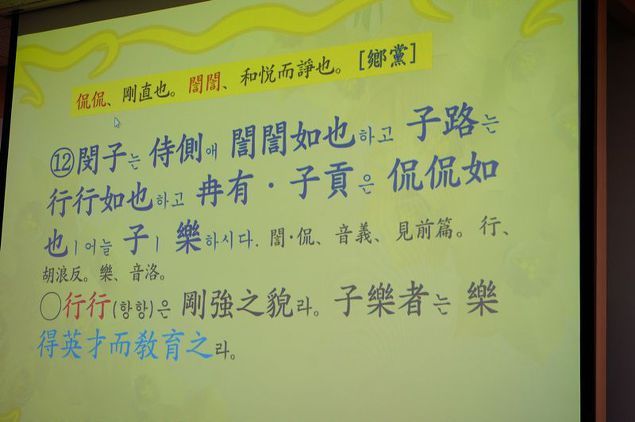 侃侃、剛直也。誾誾、和悦而諍也。[鄕黨]
⑫閔子는 侍側애 誾誾如也하고 子路는
行行如也하고 冉有·子貢은 侃侃如
也ㅣ어늘 子ㅣ 樂하시다. 誾·侃、音義、見前篇。行、
胡浪反。樂、音洛。
○行行(항항)은 剛強之貌라。子樂者는 樂
得英才而敎育之라。